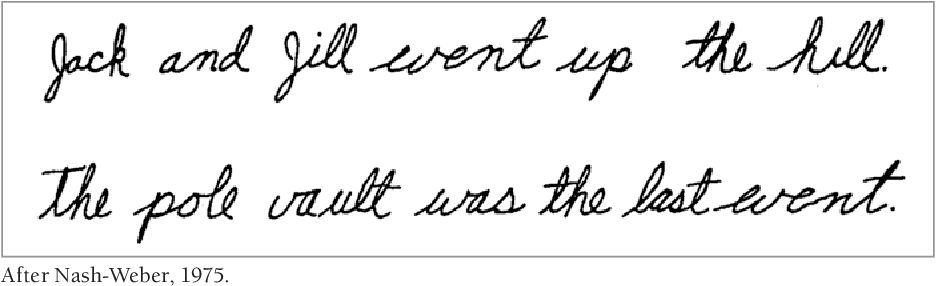 Jack and Jill went up the hill.
The pole vault was the last event.
After Nash-Weber, 1975.